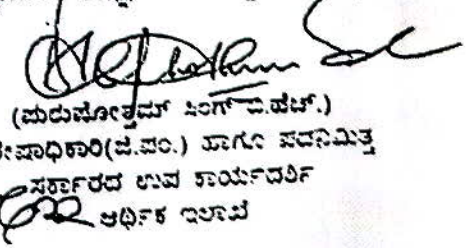 (ಪುರುಷೋತ್ತಮ್ ಸಿಂಗ್ ಬಿ.ಹೆಚ್.)
ಶೇಷಾಧಿಕಾರಿ(ಜಿ.ಪಂ.) ಹಾಗೂ ಪದನಿಮಿತ್ತ
ಸರ್ಕಾರದ ಉಪ ಕಾರ್ಯದರ್ಶಿ
ಆರ್ಥಿಕ ಇಲಾಖೆ